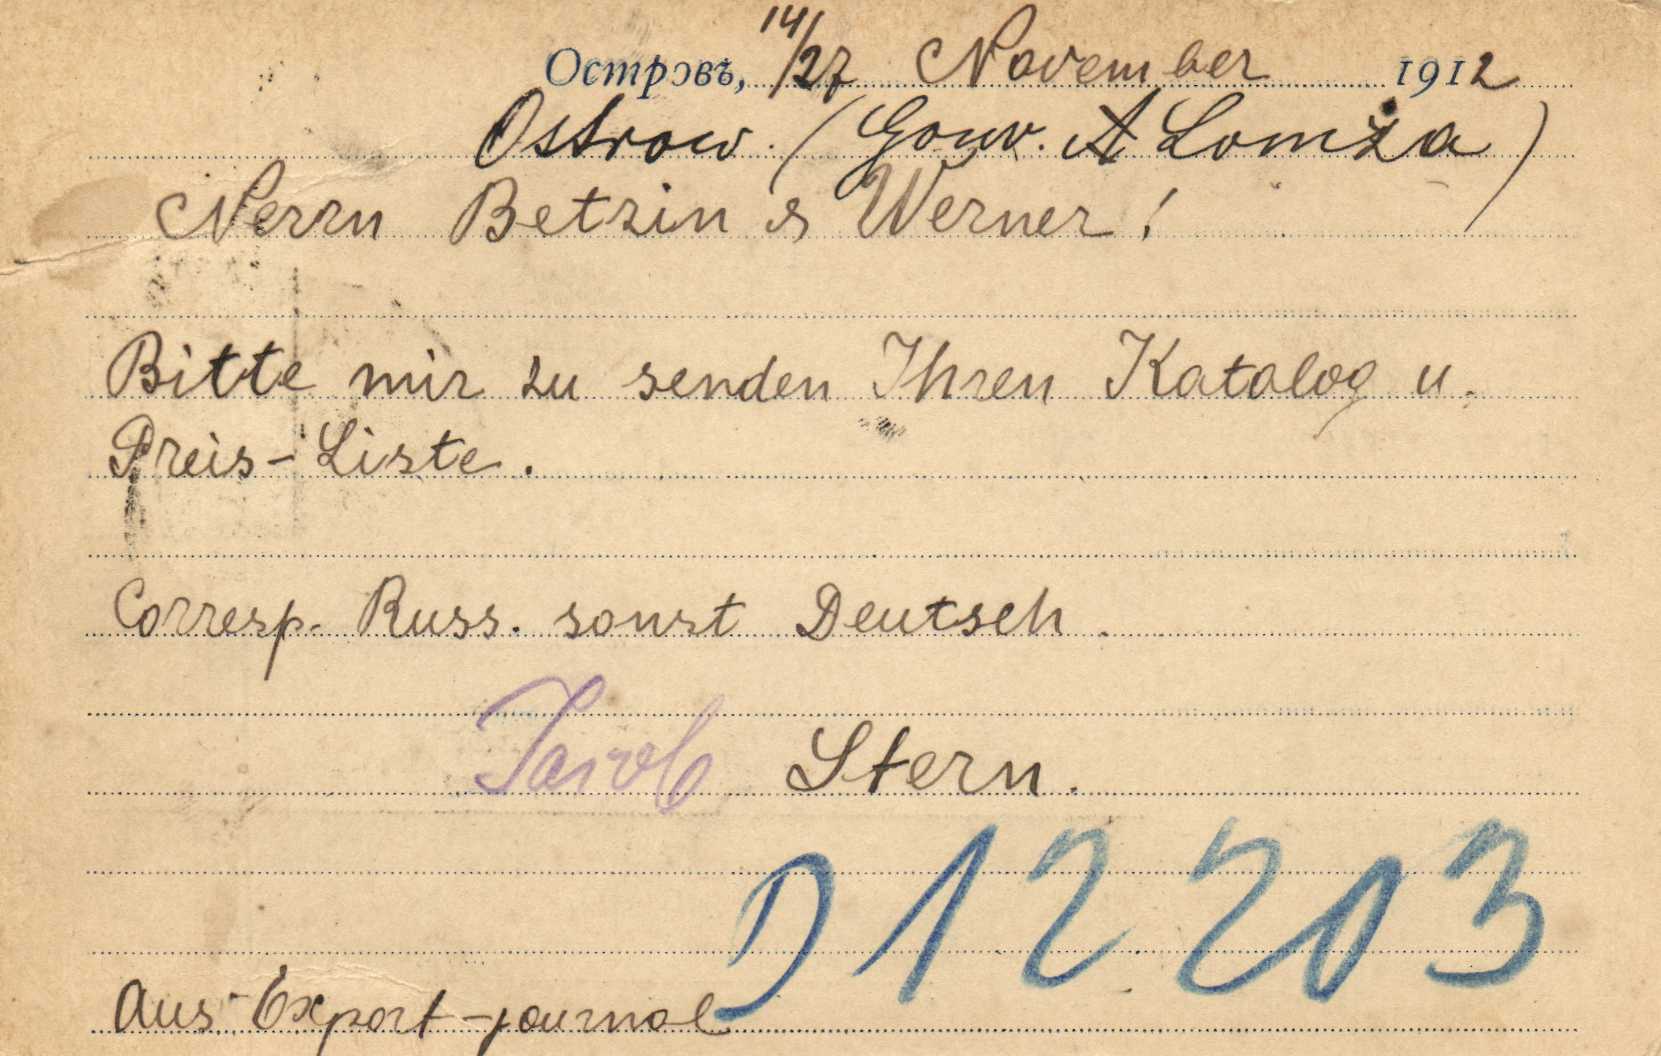 Островъ, 14/27 November 1912
Ostrow. (Gouv. Lomża)
Herrn Betzin & Werner!
Bitte mir zu senden Ihren Katalog u.
Preis-Liste.
Corresp. Russ. sonst Deutsch.
Jacob Stern.
D 12203
Aus Export-journal